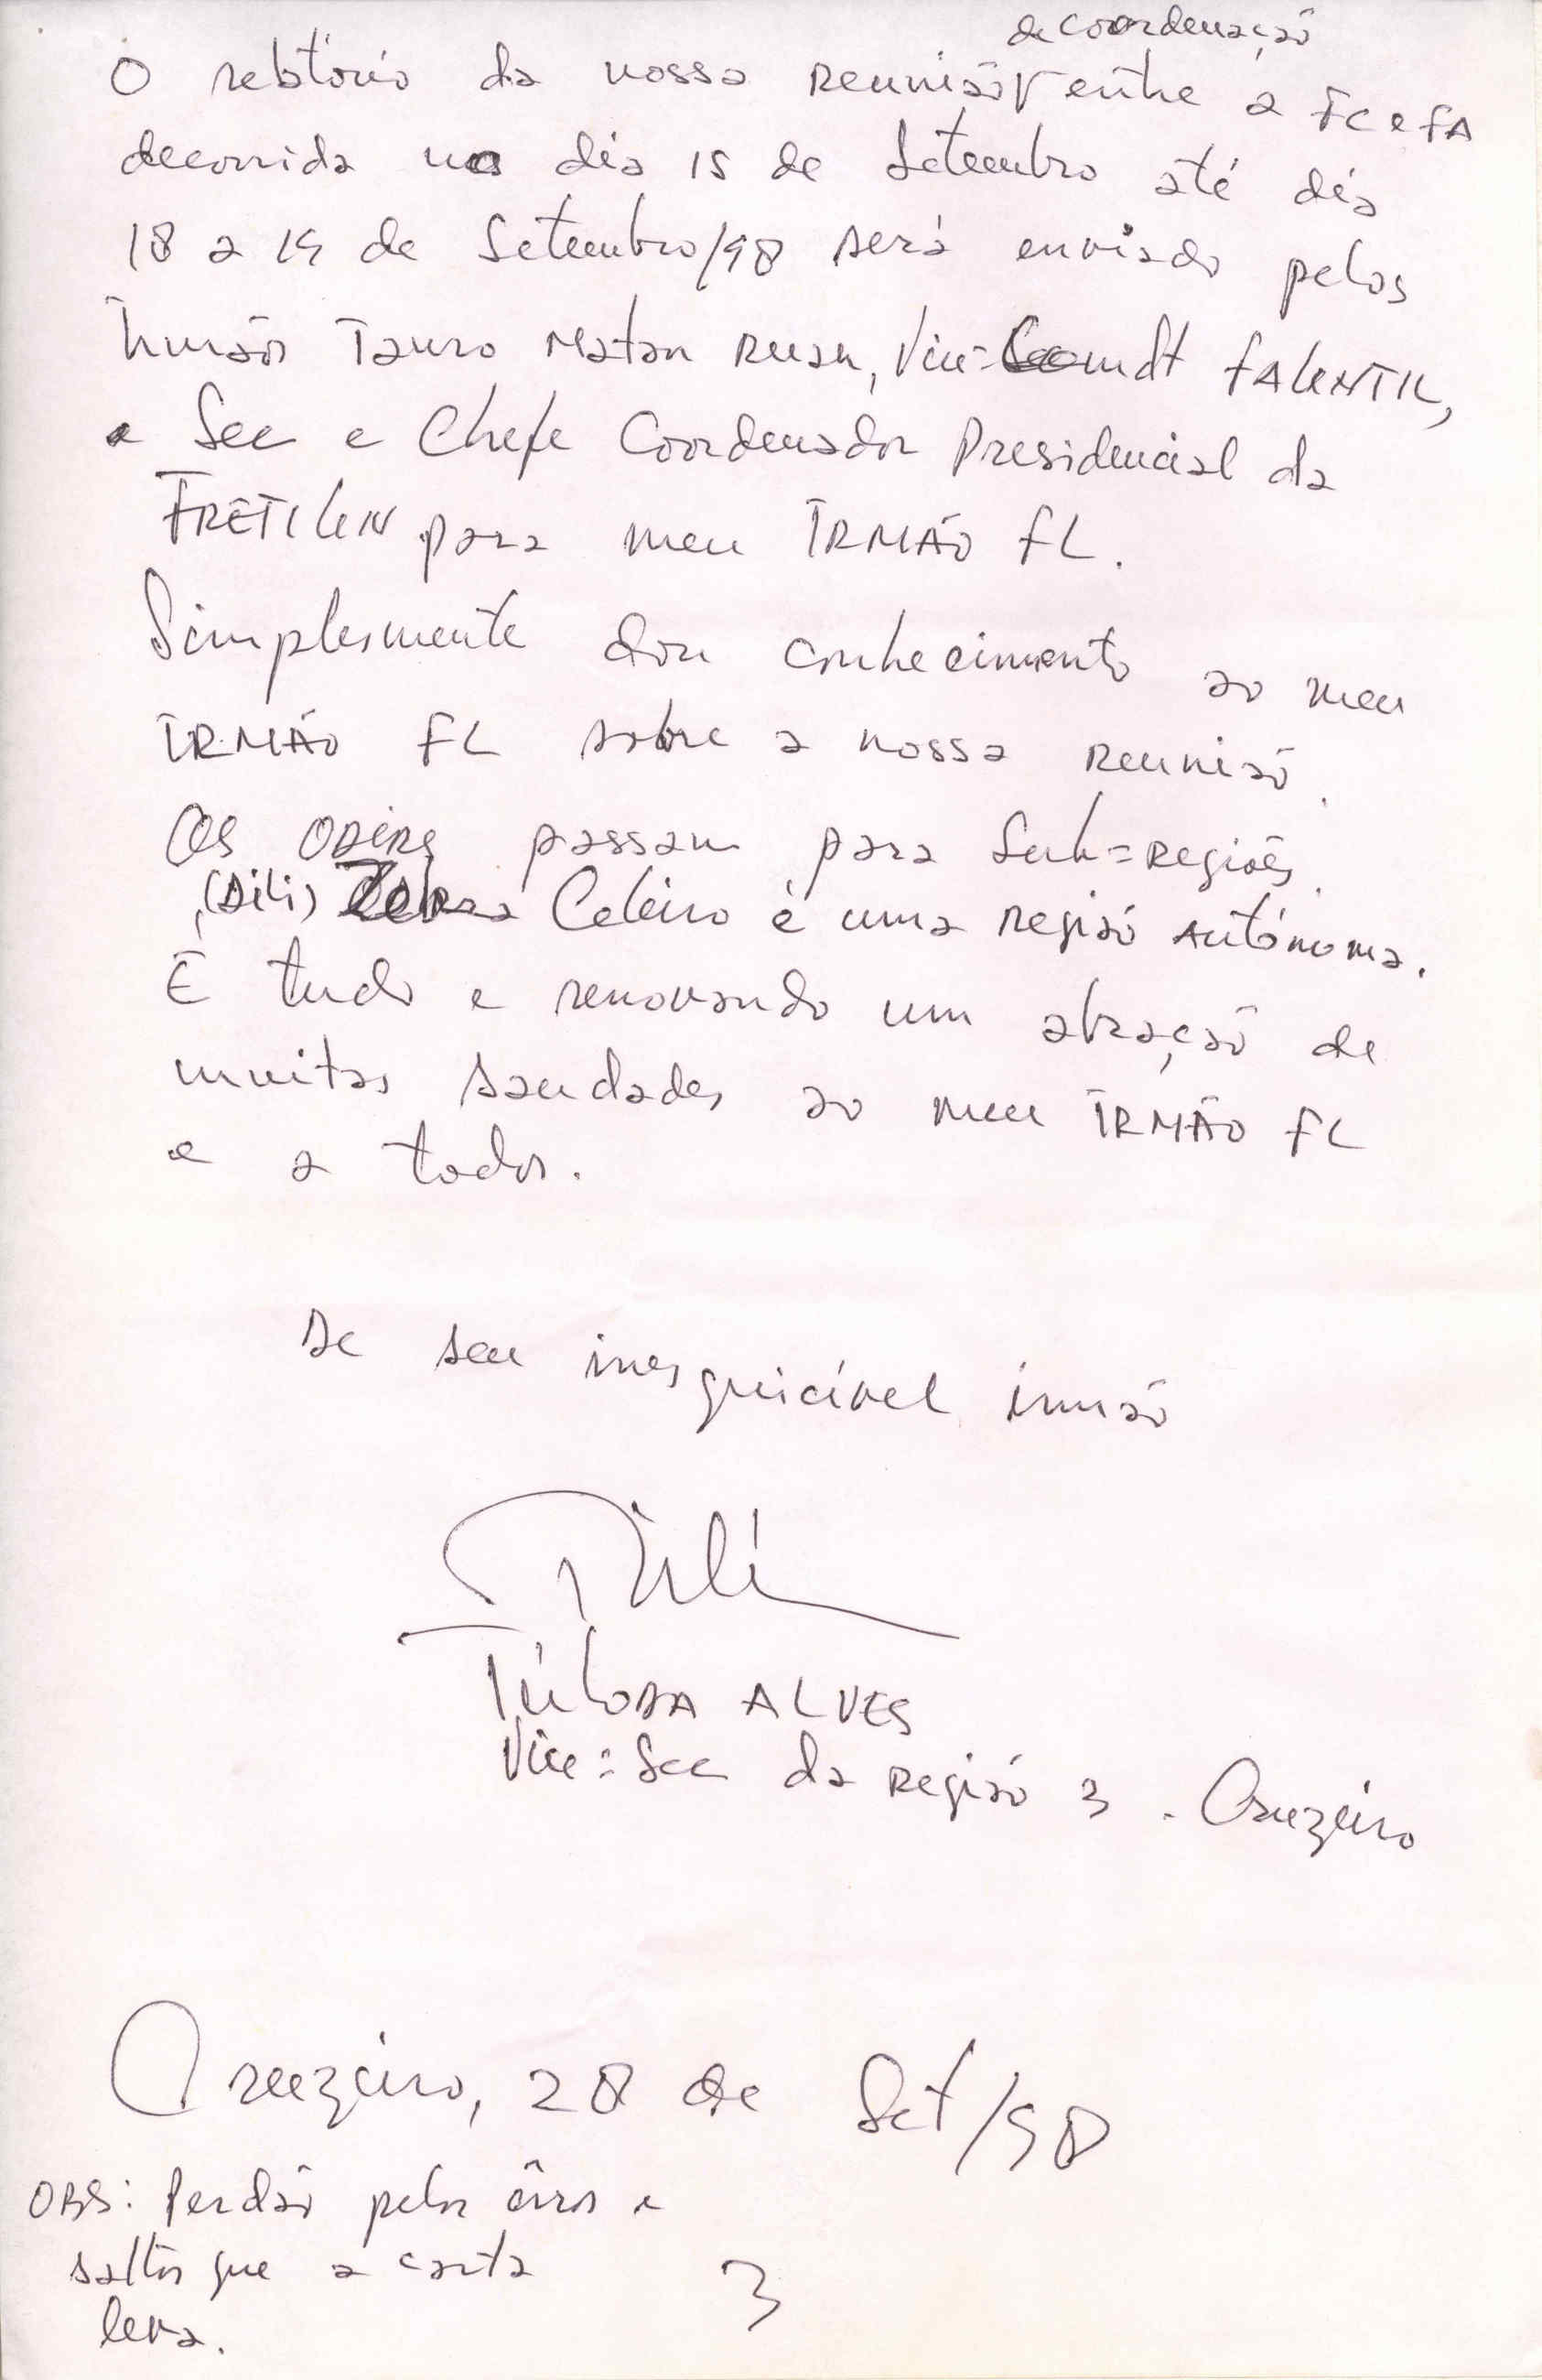 de coordenação
O relatório da nossa Reunião entre a FC e FA
decorrida no dia 15 de Setembro até dia
18 a 19 de Setembro/98 será enviado pelos
Irmãos Tauro Matan Ruan, Vice=Comdt FALINTIL,
e Sec e Chefe Coordenador Presidencial da
FRETILIN para meu IRMÃO FL.
Simplesmente dou conhecimento ao meu
IRMÃO FL sobre a nossa Reunião.
Os passam para Sub=regiões.
(Dili) Celeiro é uma Região Autónoma.
É tudo e renovando um abração de
muitas saudades ao meu IRMÃO FL
e a todos.
De seu inesquicível irmão
Túlo
TÚLODA ALVES
Vice=Sec da Região 3. Cruzeiro
Cruzeiro, 28 de Set/98
OBS: Perdão pelos êrros e
saltos que a carta
leva.
3